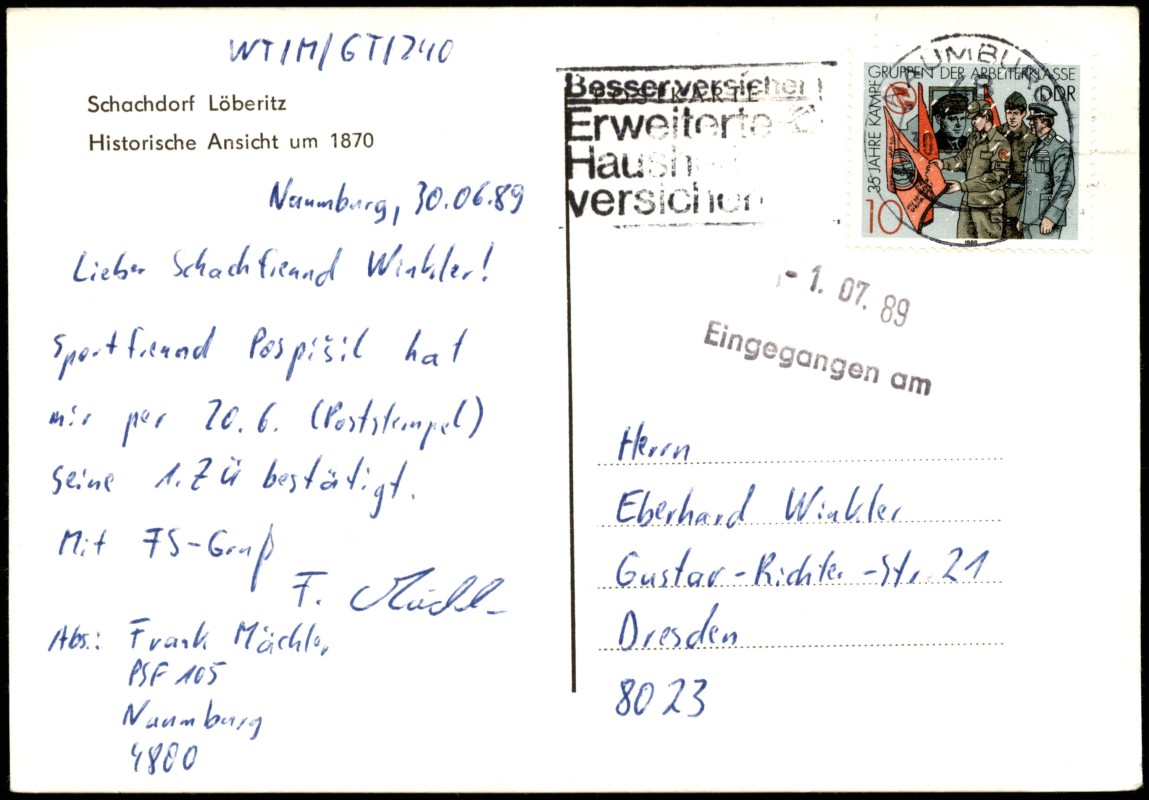 WT/M/GT/240
Schachdorf Löberitz
Historische Ansicht um 1870
Naumburg, 30.06.89
Lieber Schachfreund Winkler!
Sportfreund Pospišil hat
mir per 20.6. (Poststempel)
seine 1. ZÜ bestätigt.
Mit FS-Gruß
F. Mächler
Abs.: Frank Mächler
PSF 105
Naumburg
4800
POSTKARTE
Besser versichert
Erweiterte
Haush
versicher
NAUMBURG
35 JAHRE KAMPFGRUPPEN DER ARBEITERKLASSE
DDR
10
1988
- 1. 07. 89
Eingegangen am
Herrn
Eberhard Winkler
Gustav-Richter-Str. 21
Dresden
8023